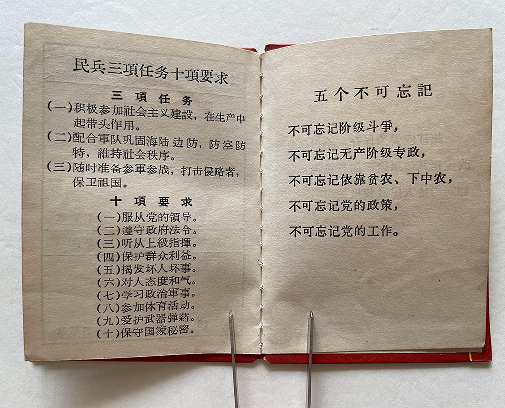 民兵三項任务十項要求
三項任务
(一)积极参加社会主义建設，在生产中
起带头作用。
(二)配合軍队巩固海陆边防，防空防
特，維持社会秩序。
(三)随时准备参軍参战，打击侵略者，
保卫祖国。
十項要求
(一)服从党的領导。
(二)遵守政府法令。
(三)听从上級指揮。
(四)保护群众利益。
(五)揭发坏人坏事。
(六)对人态度和气。
(七)学习政治軍事。
(八)参加体育活动。
(九)爱护武器弹葯。
(十)保守国家秘密。
五个不可忘記
不可忘记阶级斗爭，
不可忘记无产阶级专政，
不可忘记依靠贫农、下中农，
不可忘记党的政策，
不可忘记党的工作。